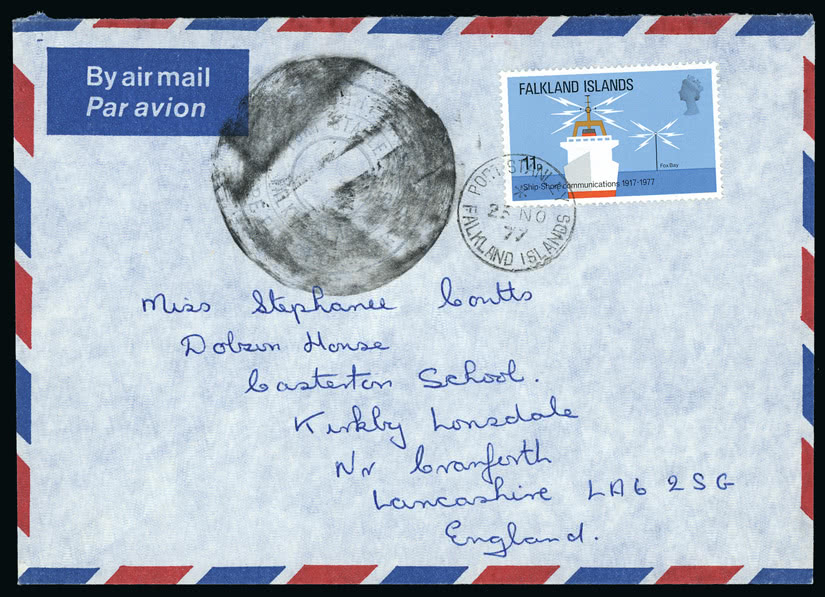 By air mail
Par avion
FALKLAND ISLANDS
11p
Fox Bay
Ship-Shore communications 1917-1977
PORT STANLEY
23 NO
77
FALKLAND ISLANDS
Miss Stephanee Coutts
Dobson House
Casterton School.
Kirkby Lonsdale
Nr Cranforth
Lancashire LA6 2SG
England.